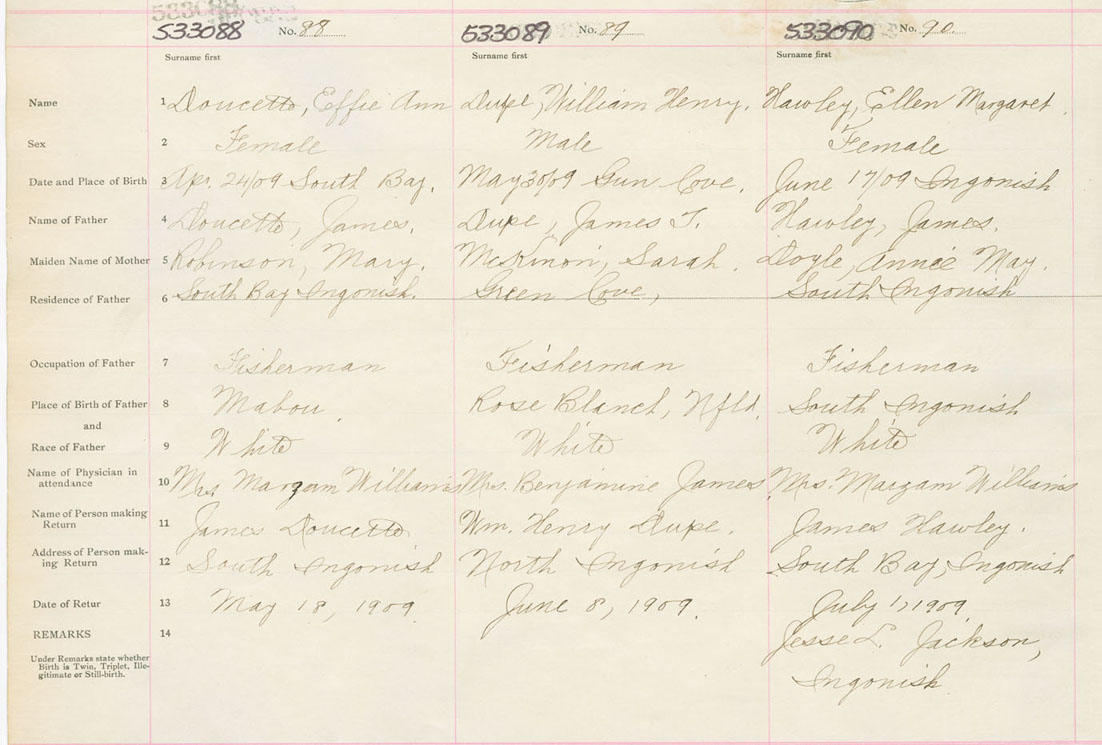 533088 No. 88 533089 No. 89 533090 No. 90.
Surname first Surname first Surname first
Name 1 Doucette, Effie Ann Dupe, William Henry. Hawley, Ellen Margaret.
Sex 2 Female Male Female
Date and Place of Birth 3 Apr. 24/09 South Bay. May 30/09 Gun Cove. June 17/09 Ingonish
Name of Father 4 Doucette, James. Dupe, James T. Hawley, James.
Maiden Name of Mother 5 Robinson, Mary. McKinon, Sarah. Doyle, Annie May.
Residence of Father 6 South Bay Ingonish. Green Cove, South Ingonish
Occupation of Father 7 Fisherman Fisherman Fisherman
Place of Birth of Father 8 Mabou. Rose Blanch, Nfld. South Ingonish
and
Race of Father 9 White White White
Name of Physician in
attendance 10 Mrs Margam Williams Mrs. Benjamine James Mrs. Margam Williams
Name of Person making
Return 11 James Doucette Wm. Henry Dupe. James Hawley.
Address of Person mak-
ing Return 12 South Ingonish North Ingonish South Bay, Ingonish
Date of Retur 13 May 18, 1909 June 8, 1909. July 1, 1909
REMARKS 14 Jesse L. Jackson,
Under Remarks state whether
Birth is Twin, Triplet, Ille-
gitimate or Still-birth.
Ingonish